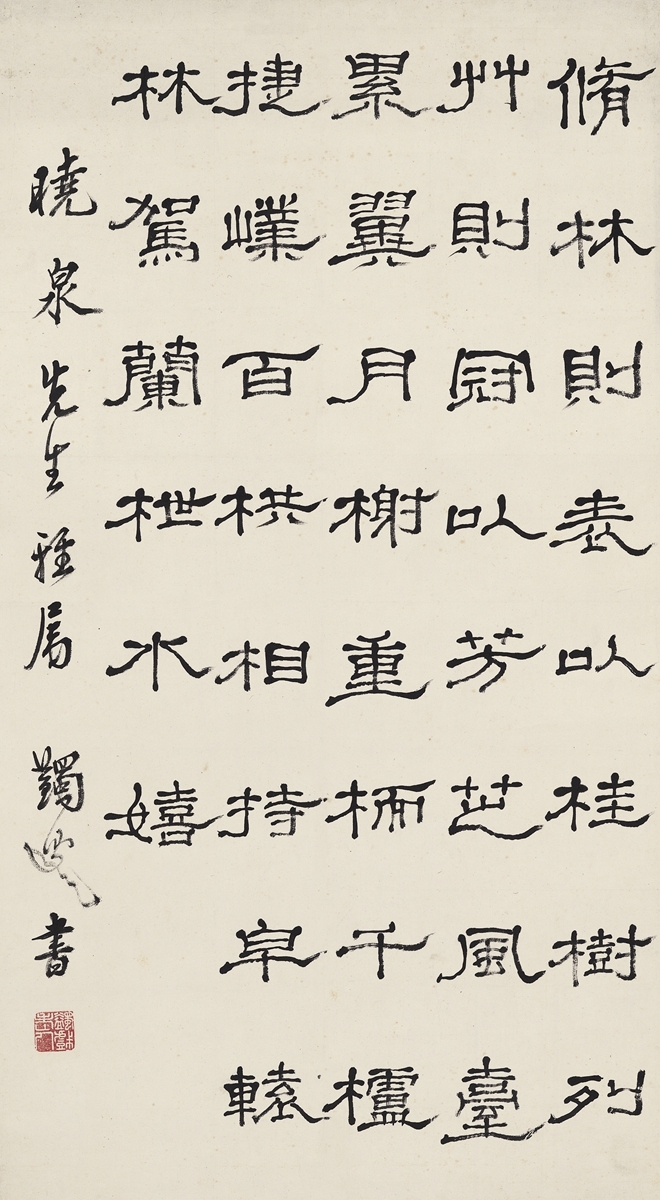 脩林則表以桂樹列
艸則冠以芳芝風臺
累翼月榭重栭千櫨
捷嶫百栱相持皁轅
林駕蘭枻水嬉
曉泉先生雅屬 蠲叟書